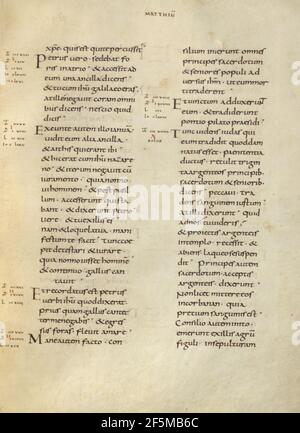 MATTHEUM
xp̄e. quis est qui te percussit
Petrus uero sedebat fo
ris in atrio · & accessit ad
eum una ancilla dicens
& tu cum ihu galilaeo eras
at ille negauit coram omni
bus dicens · nescio quid
dicis
Exeunte autem illo ianuā
uidit eum alia ancilla
& ait his qui erant ibi
& hic erat cum ihu nazare
no · & iterum negauit cū
iuramento · quia non no
ui hominem · & post pusil
lum · accesserunt qui sta
bant · & dixerunt petro
uere · & tu ex illis es
nam & loquela tua · mani
festum te facit · Tunc coe
pit detestari & iurare
quia non nouisset hominē
& continuo · gallus can
tauit
Et recordatus est petrus
uerbi ihu quod dixerat
prius quam gallus cantet
ter me negabis · & egres
sus foras · fleuit amare
Mane autem facto · con
silium inierunt omnes
principes sacerdotum
& seniores populi ad
uersus ihm · ut eum mor
ti traderent
Et uinctum adduxerunt
eum · & tradiderunt
pontio pilato praesidi
Tunc uidens iudas qui
eum tradidit quod dam
natus esset · paenitentia
ductus · rettulit trigin
ta argenteos principib·
sacerdotum & seniorib·
dicens · peccaui tra
dens sanguinem iustum
at illi dixerunt · quid
ad nos · tu uideris
& proiectis argenteis
in templo · recessit · &
abiens laqueo se suspen
dit · principes autem
sacerdotum · acceptis
argenteis · dixerunt
Non licet mittere eos
in corbanan · quia
pretium sanguinis est ·
Consilio autem inito ·
emerunt ex illis agrū
figuli · in sepulturam
alamy
Image ID: 2F5MB6C
www.alamy.com